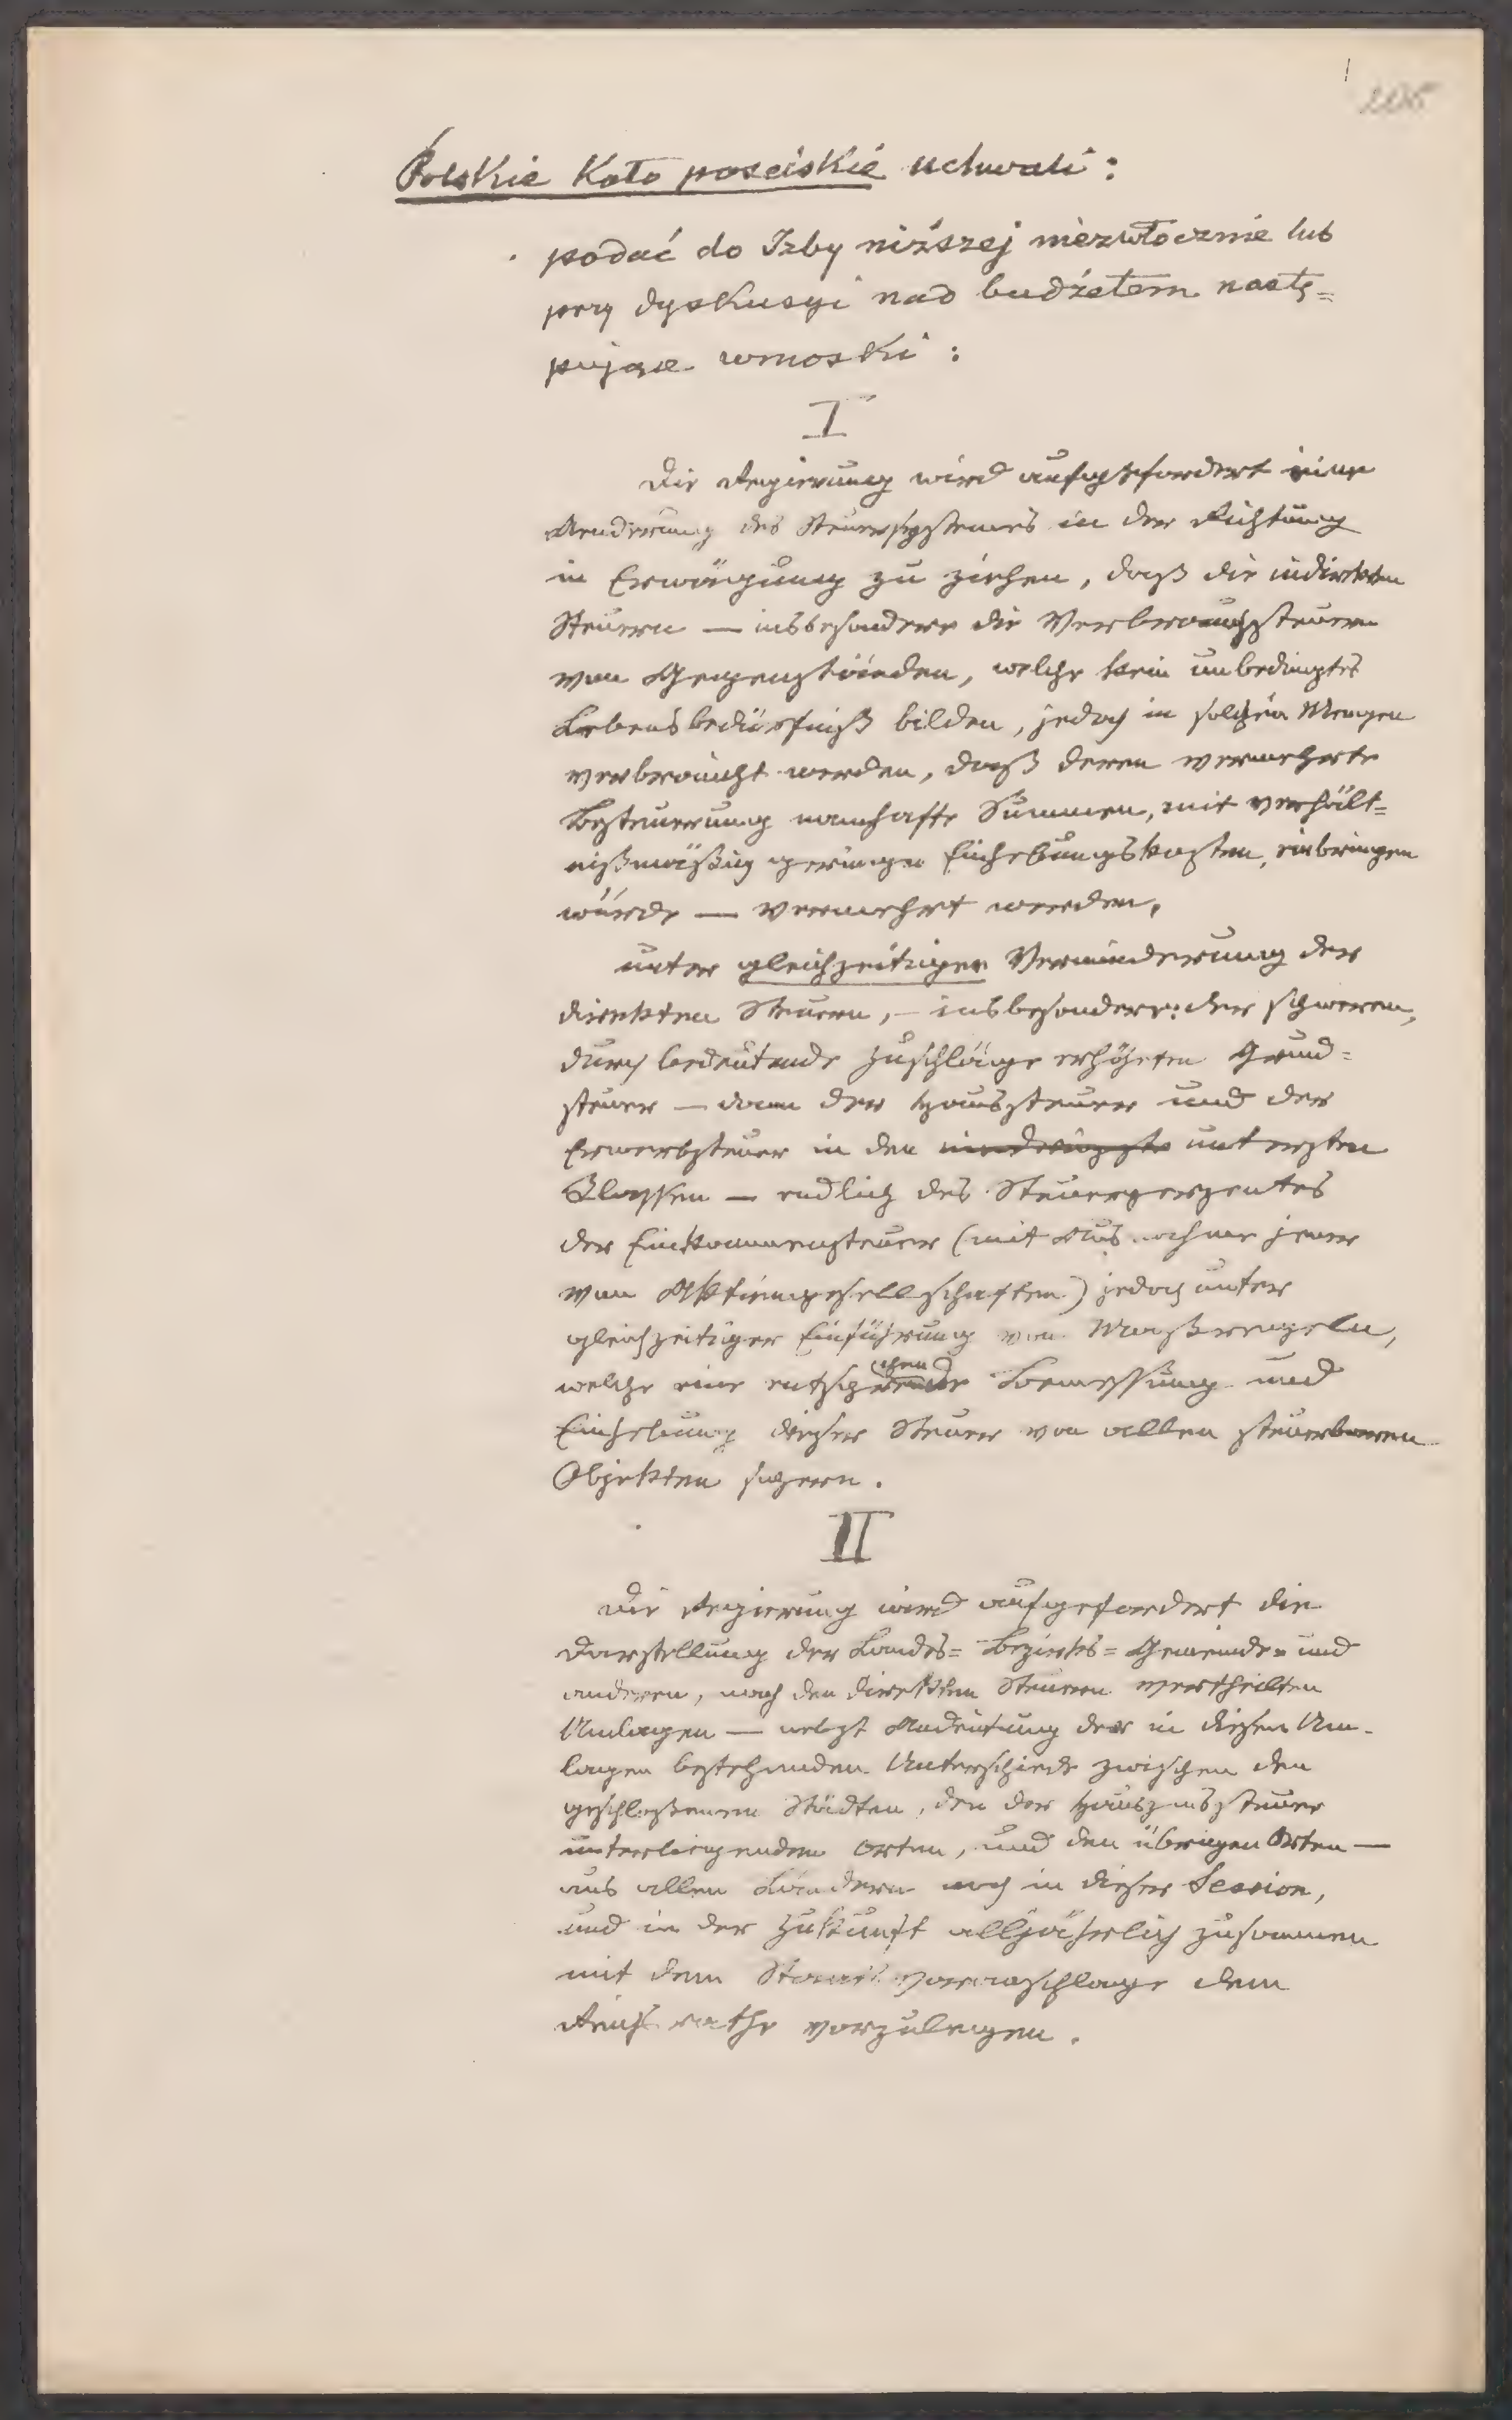 Polskie Koło poselskie uchwali:
podać do Izby niższej niezwłocznie lub
przy dyskusyi nad budżetem nastę=
pujące wnioski:
I
Die Regierung wird aufgefordert eine
Aenderung des Steuersystemes in der Richtung
in Erwägung zu ziehen, daß die indirekten
Steuern — insbesondere die Verbrauchssteuern
von Gegenständen, welche kein unbedingtes
Lebensbedürfniß bilden, jedoch in solchen Mengen
verbraucht werden, daß deren vermehrte
Besteuerung namhafte Summen, mit verhält=
nißmäßig geringen Einhebungskosten, einbringen
würde — vermehrt werden,
unter gleichzeitiger Verminderung der
direkten Steuern, — insbesondere: der schweren,
durch bedeutende Zuschläge erhöhten Grund=
steuer — dann der Haussteuer und der
Erwerbsteuer in den untersten
Klassen — endlich des Steuerperzentes
der Einkommensteuer (mit Ausnahme jener
von Aktiengesellschaften) jedoch unter
gleichzeitiger Einführung von Maßregeln,
welche eine Bemessung und
Einhebung dieser Steuer von allen steuerbaren
Objekten sichern.
II
Die Regierung wird aufgefordert die
Darstellung der Landes= Bezirks= Gemeinde= und
anderen, nach den direkten Steuern vertheilten
Umlagen — nebst Andeutung der in diesen Um-
lagen bestehenden Unterschiede zwischen den
geschloßenen Städten, den der Hauszinssteuer
unterliegenden Orten, und den übrigen Orten —
aus allen Ländern noch in dieser Session,
und in der Zukunft alljährlich zusammen
mit dem Staatsvoranschlage dem
Reichsrathe vorzulegen.